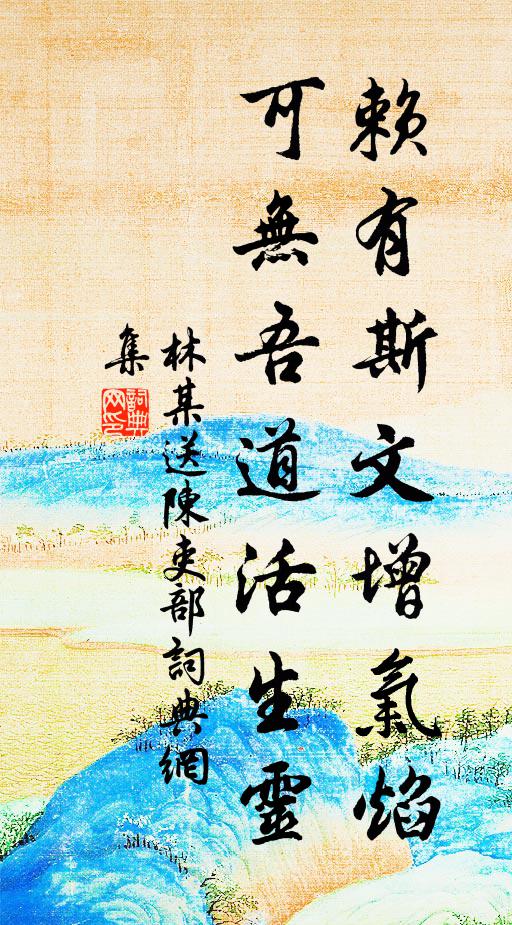 賴有斯文增氣焰
可無吾道活生靈
林某送陳吏部詞典網
集
詞典
网印